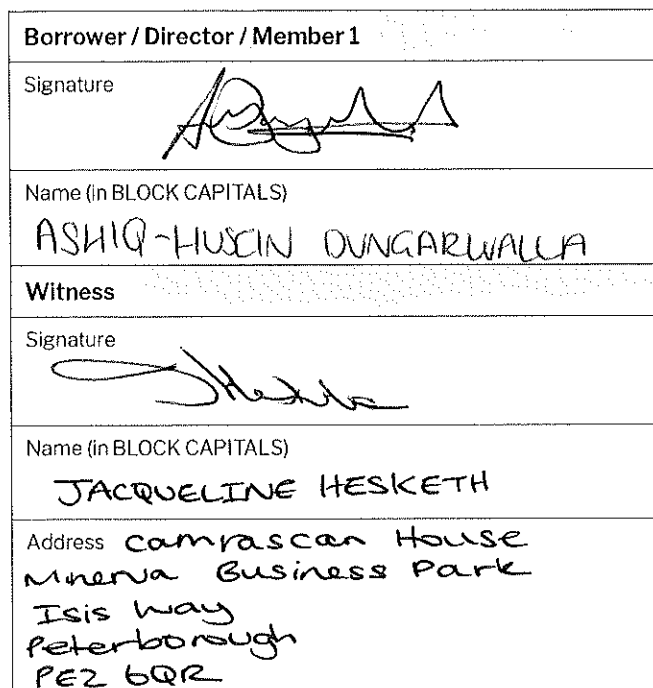 Borrower / Director / Member 1
Signature
Name (in BLOCK CAPITALS)
ASHIQ-HUSEIN DUNGARWALLA
Witness
Signature
Name (in BLOCK CAPITALS)
JACQUELINE HESKETH
Address Camrascan House
Minerva Business Park
Isis Way
Peterborough
PE2 6QR